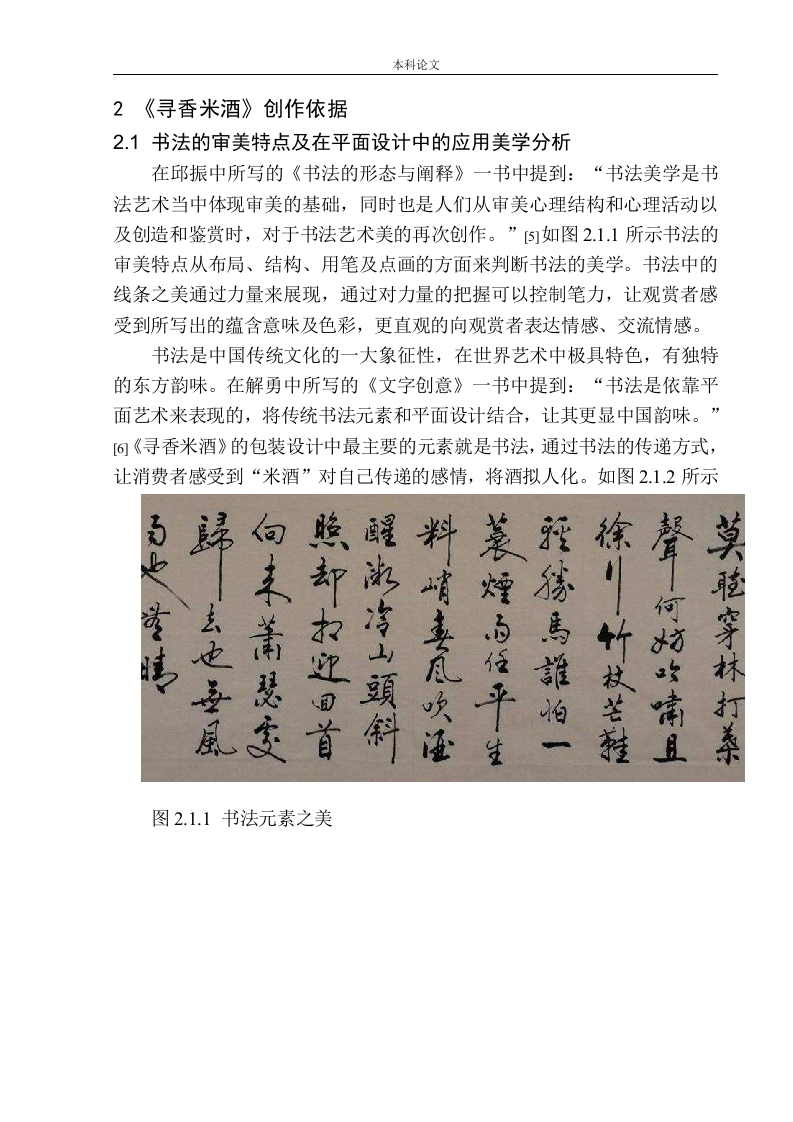 本科论文
2 《寻香米酒》创作依据
2.1 书法的审美特点及在平面设计中的应用美学分析
在邱振中所写的《书法的形态与阐释》一书中提到：“书法美学是书
法艺术当中体现审美的基础，同时也是人们从审美心理结构和心理活动以
及创造和鉴赏时，对于书法艺术美的再次创作。”[5]如图 2.1.1 所示书法的
审美特点从布局、结构、用笔及点画的方面来判断书法的美学。书法中的
线条之美通过力量来展现，通过对力量的把握可以控制笔力，让观赏者感
受到所写出的蕴含意味及色彩，更直观的向观赏者表达情感、交流情感。
书法是中国传统文化的一大象征性，在世界艺术中极具特色，有独特
的东方韵味。在解勇中所写的《文字创意》一书中提到：“书法是依靠平
面艺术来表现的，将传统书法元素和平面设计结合，让其更显中国韵味。”
[6]《寻香米酒》的包装设计中最主要的元素就是书法，通过书法的传递方式，
让消费者感受到“米酒”对自己传递的感情，将酒拟人化。如图 2.1.2 所示
莫聽穿林打葉
聲何妨吟嘯且
徐行竹杖芒鞋
輕勝馬誰怕一
蓑煙雨任平生
料峭春風吹酒
醒微冷山頭斜
照却相迎回首
向来蕭瑟處
歸去也無風
雨也無晴
图 2.1.1 书法元素之美